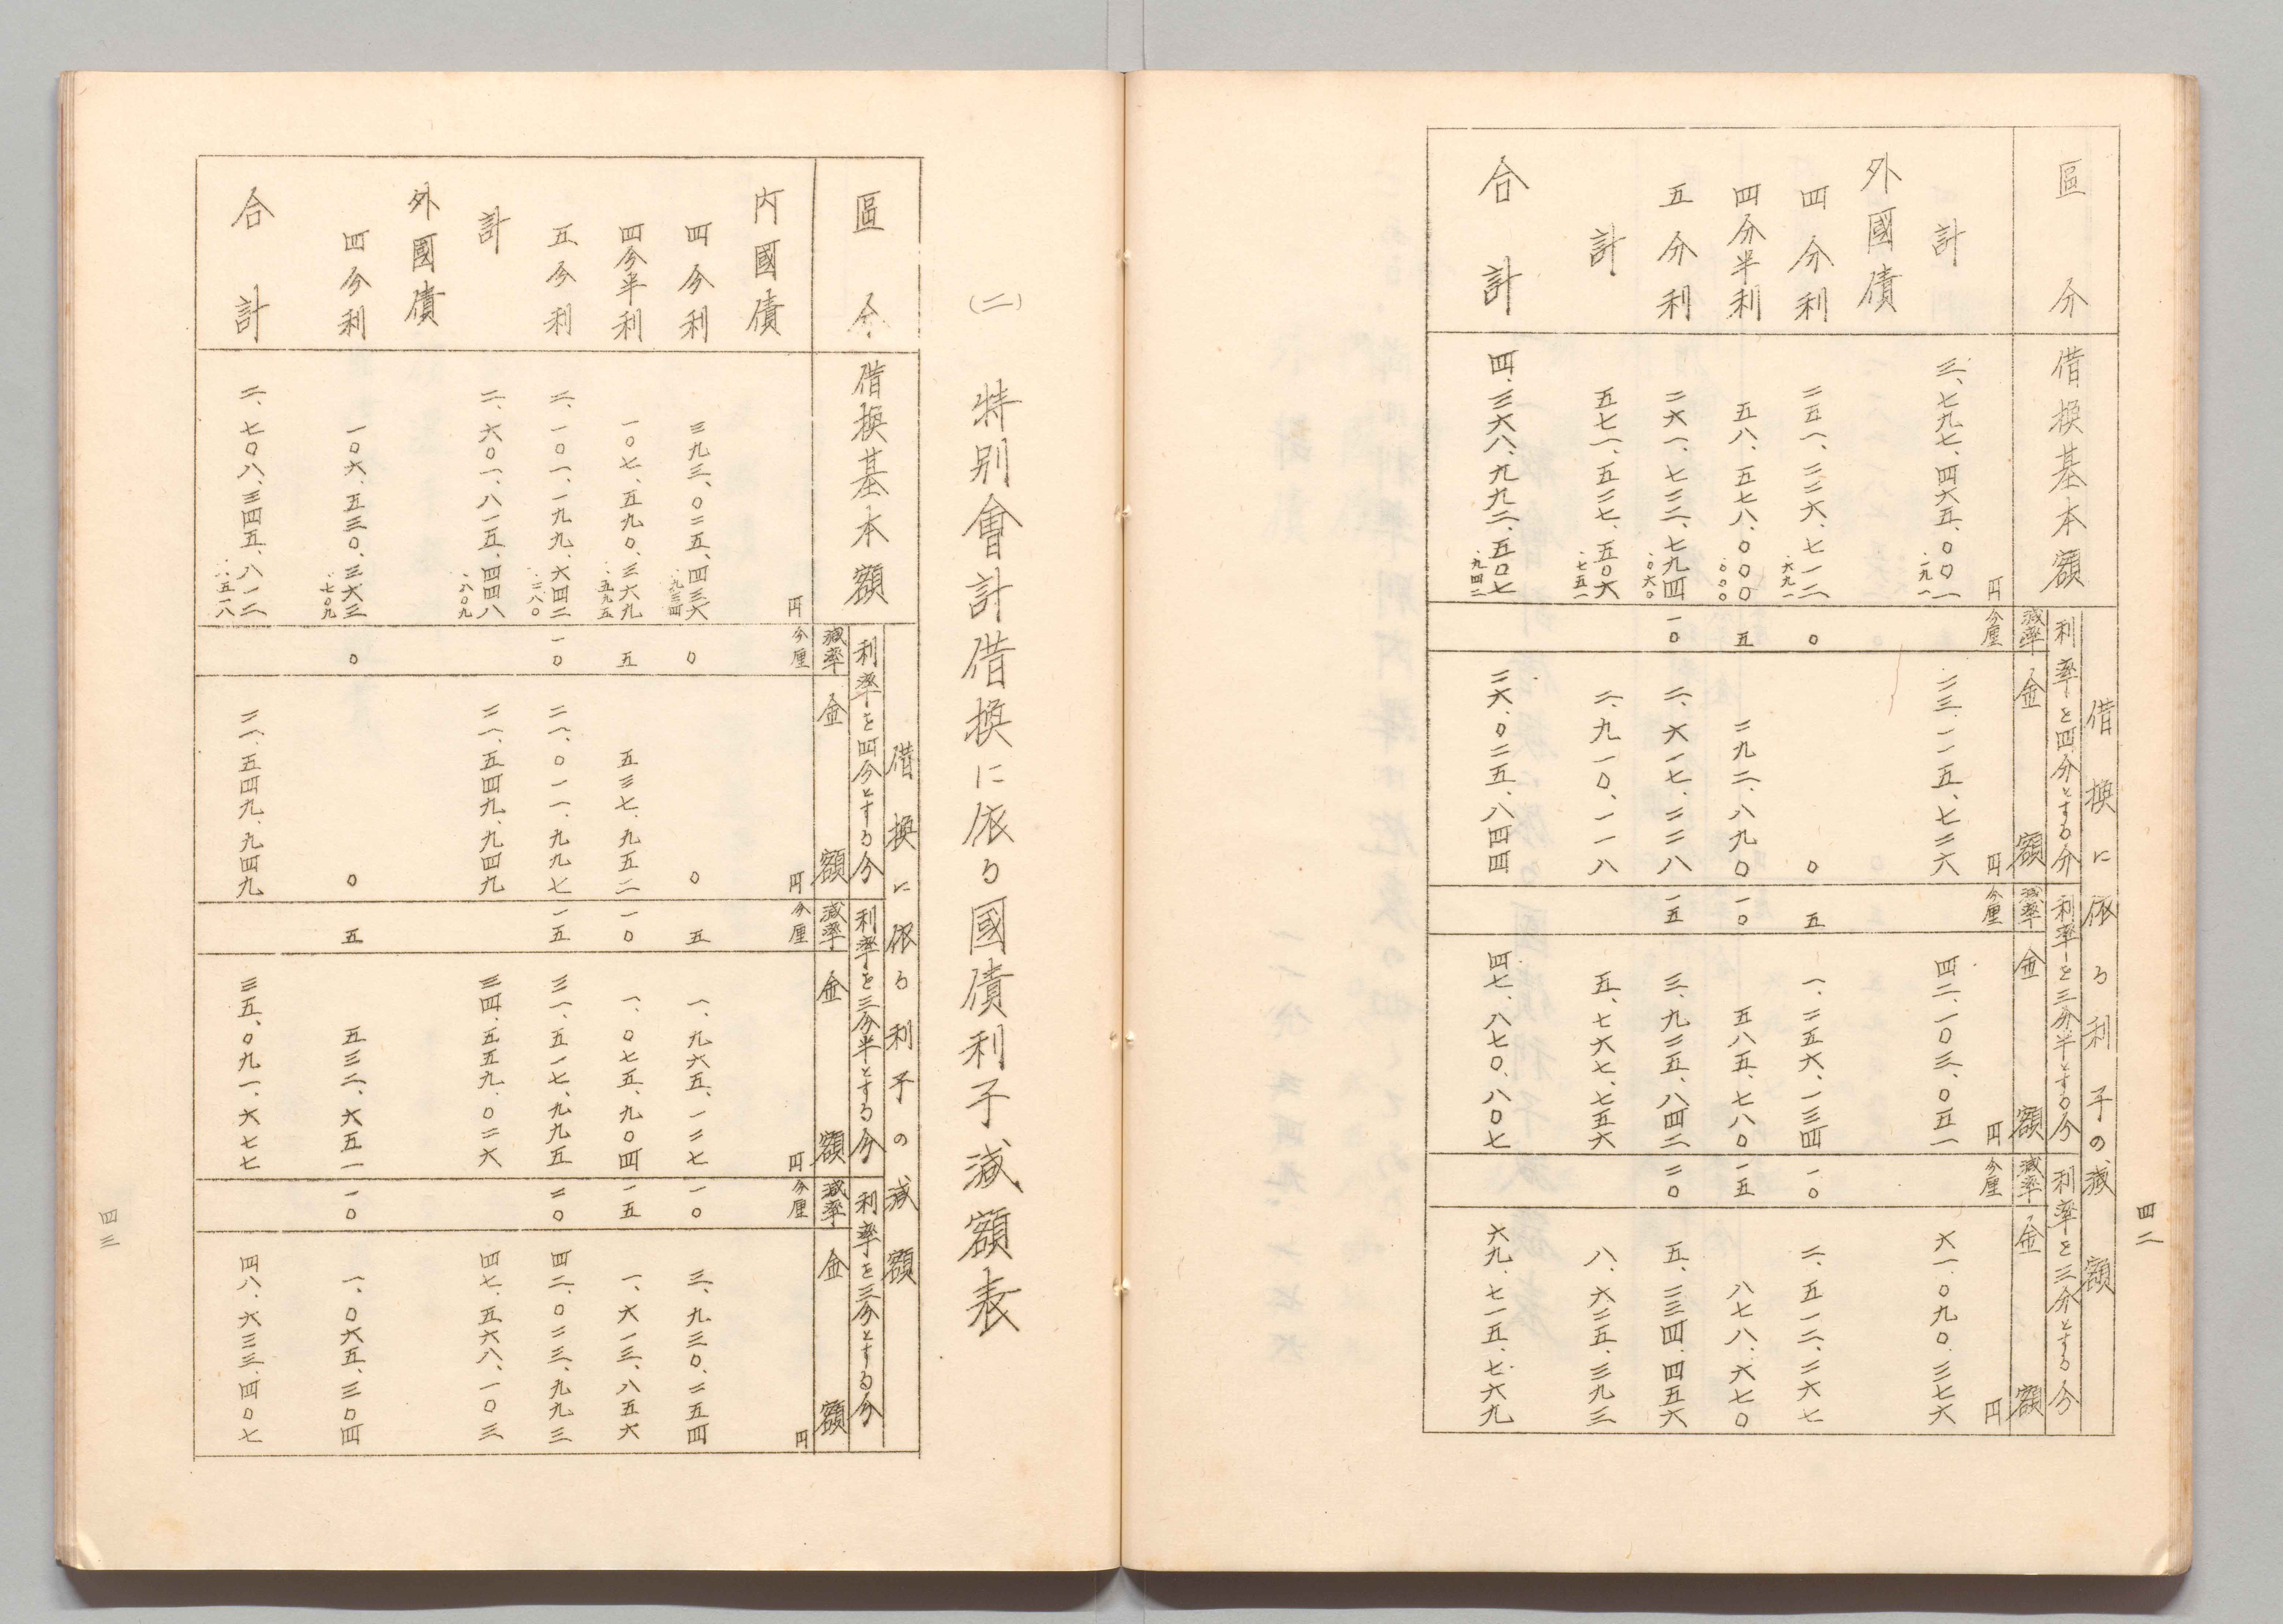 四二
區分 借換基本額 借換に依る利子の減額
利率を四分とする分 利率を三分半とする分 利率を三分とする分
減率 金額 減率 金額 減率 金額
円 分厘 円 分厘 円 分厘 円
計 三、七九七、四六五、〇〇一.一九一 二三、一一五、七二六 四二、一〇三、〇五一 六一、〇九〇、三七六
外國債
四分利 二五一、二二六、七一二.六九一 〇 〇 五 一、二五六、一三四 一〇 二、五一二、二六七
四分半利 五八、五七八、〇〇〇.〇〇〇 五 二九二、八九〇 一〇 五八五、七八〇 一五 八七八、六七〇
五分利 二六一、七二二、七九四.〇六〇 一〇 二、六一七、二二八 一五 三、九二五、八四二 二〇 五、二三四、四五六
計 五七一、五二七、五〇六.七五一 二、九一〇、一一八 五、七六七、七五六 八、六二五、三九三
合計 四、三六八、九九二、五〇七.九四二 二六、〇二五、八四四 四七、八七〇、八〇七 六九、七一五、七六九
(二) 特別會計借換に依る國債利子減額表
區分 借換基本額 借換に依る利子の減額
利率を四分とする分 利率を三分半とする分 利率を三分とする分
減率 金額 減率 金額 減率 金額
円 分厘 円 分厘 円 分厘 円
内國債
四分利 三九三、〇二五、四三六.九三四 〇 〇 五 一、九六五、一二七 一〇 三、九三〇、二五四
四分半利 一〇七、五九〇、三六九.五九五 五 五三七、九五二 一〇 一、〇七五、九〇四 一五 一、六一三、八五六
五分利 二、一〇一、一九九、六四二.二八〇 一〇 二一、〇一一、九九七 一五 三一、五一七、九九五 二〇 四二、〇二三、九九三
計 二、六〇一、八一五、四四八.八〇九 二一、五四九、九四九 三四、五五九、〇二六 四七、五六八、一〇三
外國債
四分利 一〇六、五三〇、三六三.七〇九 〇 〇 五 五三二、六五一 一〇 一、〇六五、三〇四
合計 二、七〇八、三四五、八一二.五一八 二一、五四九、九四九 三五、〇九一、六七七 四八、六三三、四〇七
四三